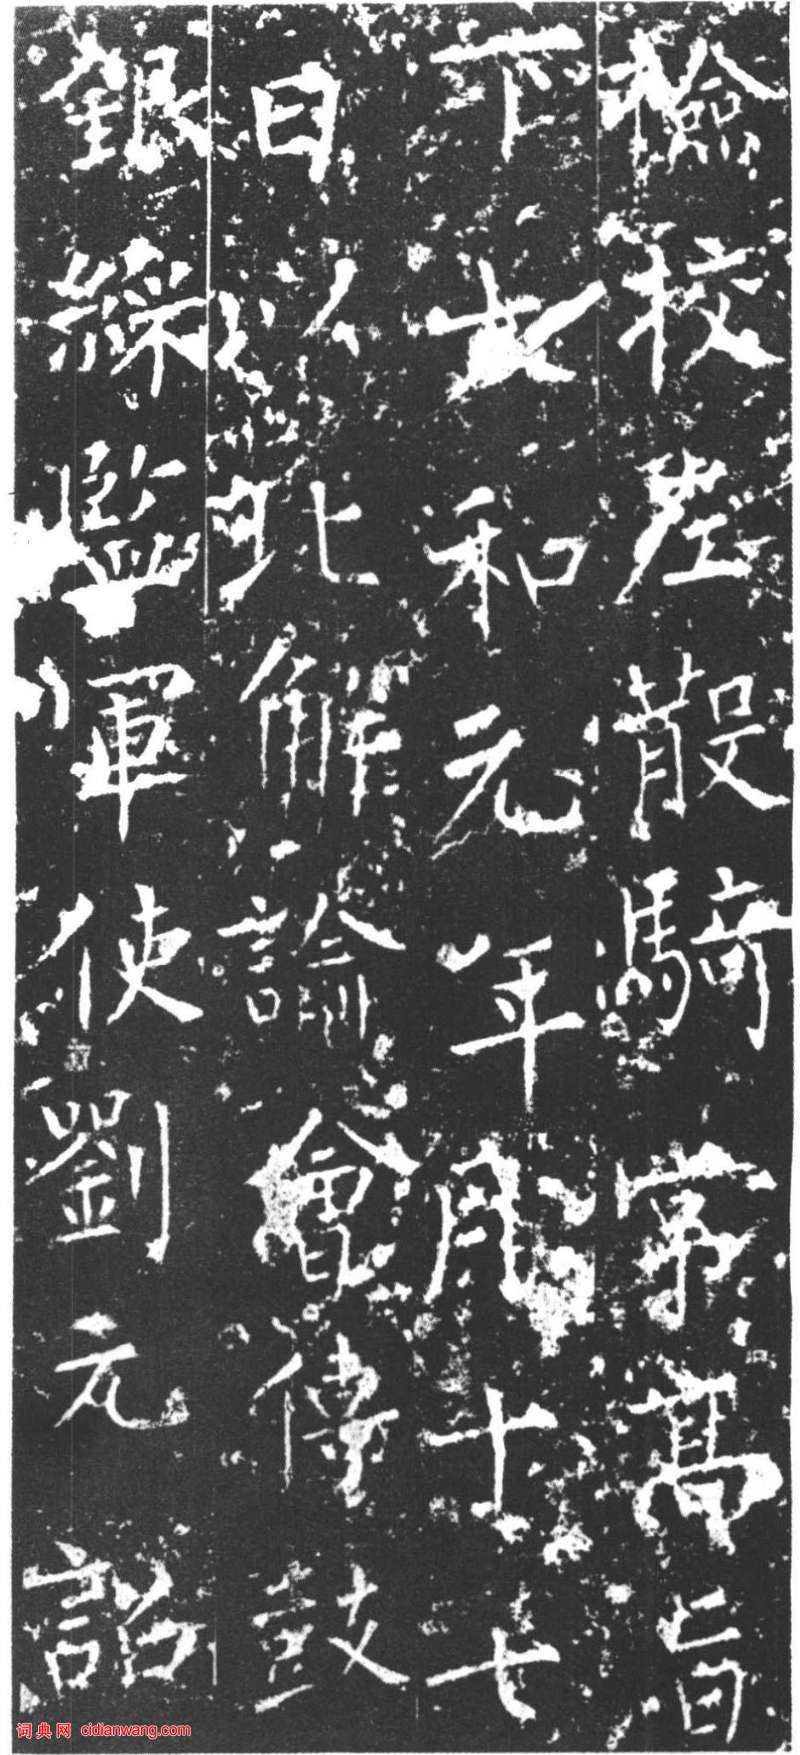 檢校左散騎常高旨
下大和元年月十七
日以北解論會傳鼓
銀綵監軍使劉元詔
词典网 cidianwang.com